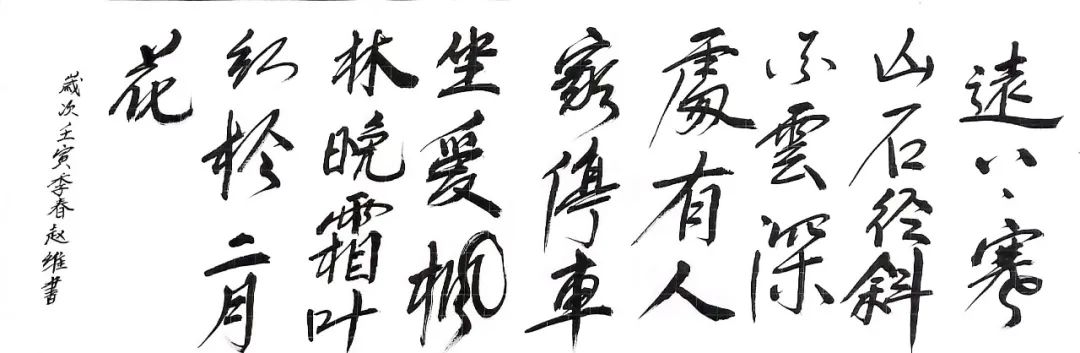 遠上寒
山石径斜
雲深
處有人
家停車
坐爱楓
林晚霜叶
红於二月
花
歲次壬寅季春赵維書